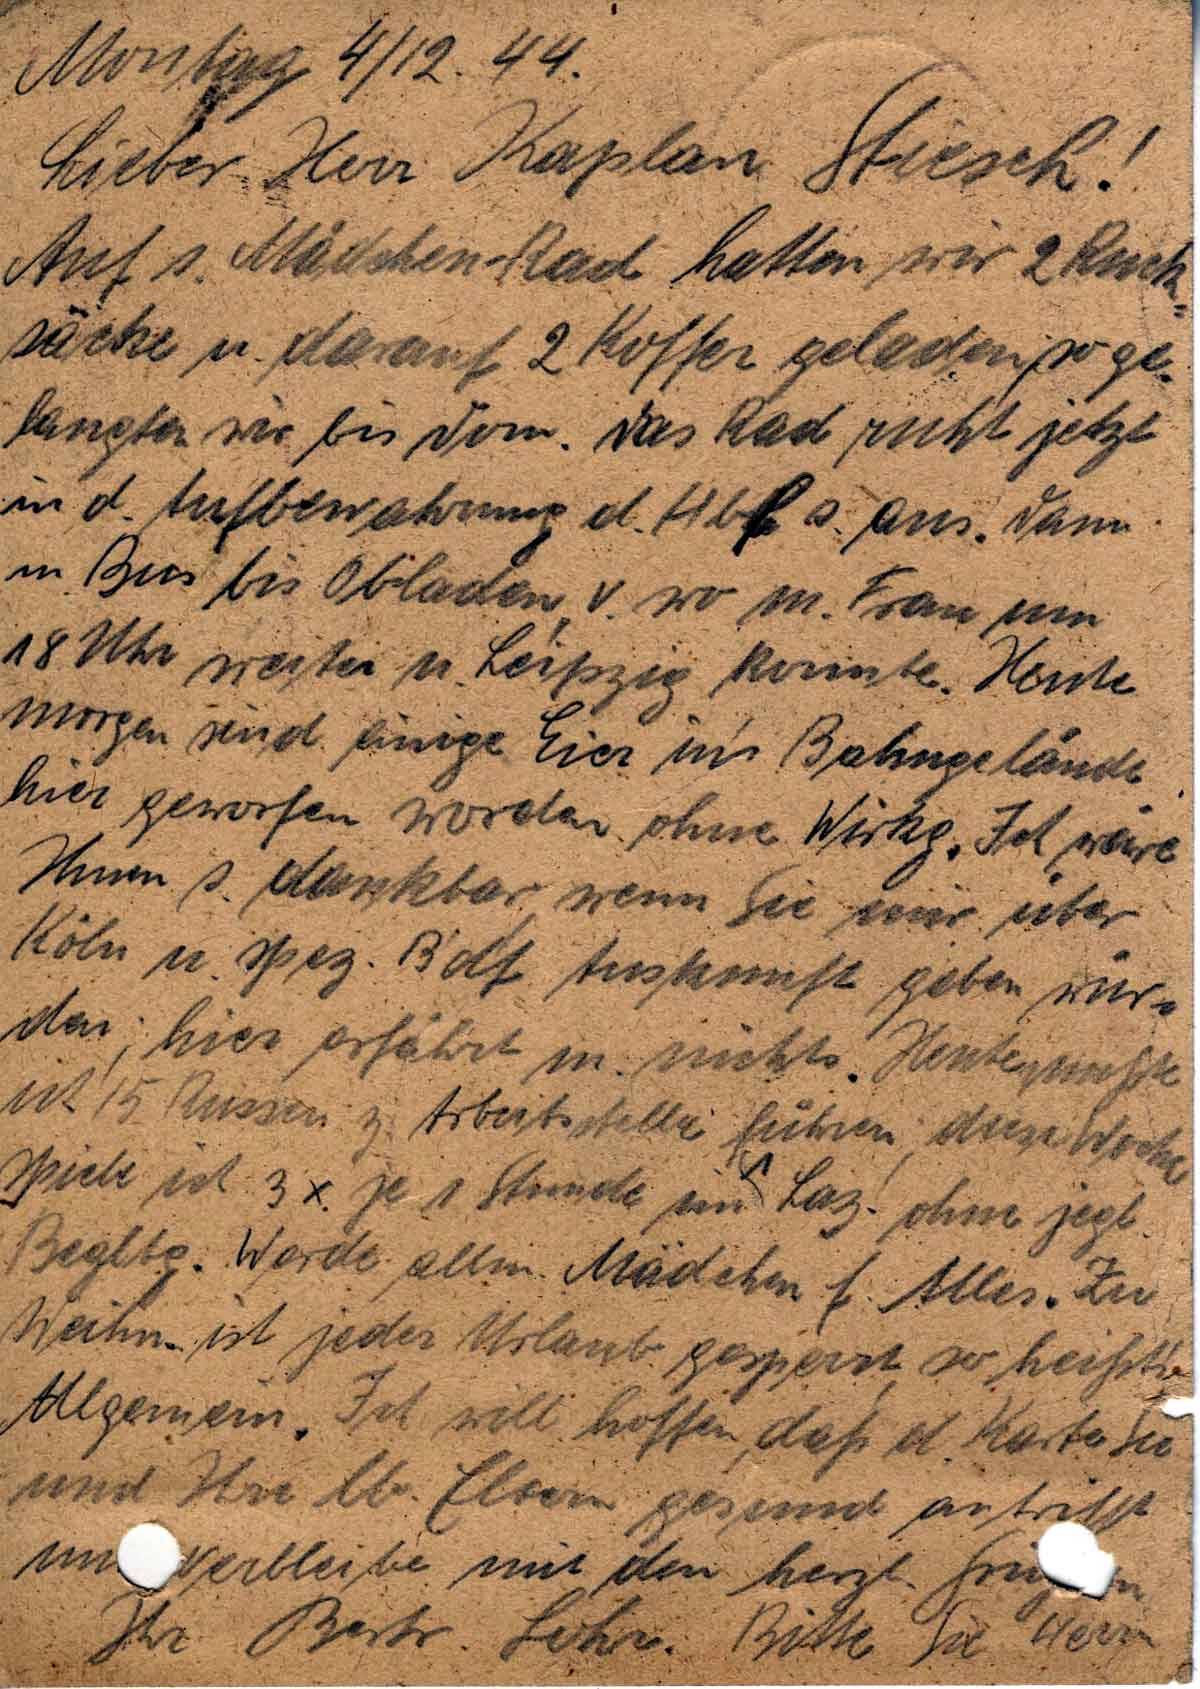 Montag 4/12. 44.
Lieber Herr Kaplan Stiesch!
Auf s. Mädchen-Rad hatten wir 2 Ruck=
säcke u. darauf 2 Koffer geladen, so ge-
langten wir bis Dom. Das Rad ruht jetzt
in d. Aufbewahrung d. Hbf s. aus. Dann
m. Bus bis Obladen, v. wo m. Frau um
18 Uhr weiter n. Leipzig konnte. Heute
morgen sind einige Eier in's Bahngelände
hier geworfen worden ohne Wirkg. Ich wäre
Ihnen s. dankbar wenn Sie mir über
Köln u. spez. B'df Auskunft geben wür-
den; hier erfährt m. nichts. Heute mußte
ich 15 Russen z. Arbeitsstelle führen, diese Woche
spiele ich 3 x. je 1 Stunde im Laz. ohne jegl.
Begltg. Werde allm. Mädchen f. Alles. Zu
Weihn. ist jeder Urlaub gesperrt, so heißt's
Allgemein. Ich will hoffen, daß d. Karte Sie
und Ihre lb. Eltern gesund antrifft
und verbleibe mit den herzl. Grüßen
Ihr Bertr. Bitte Sie Herrn